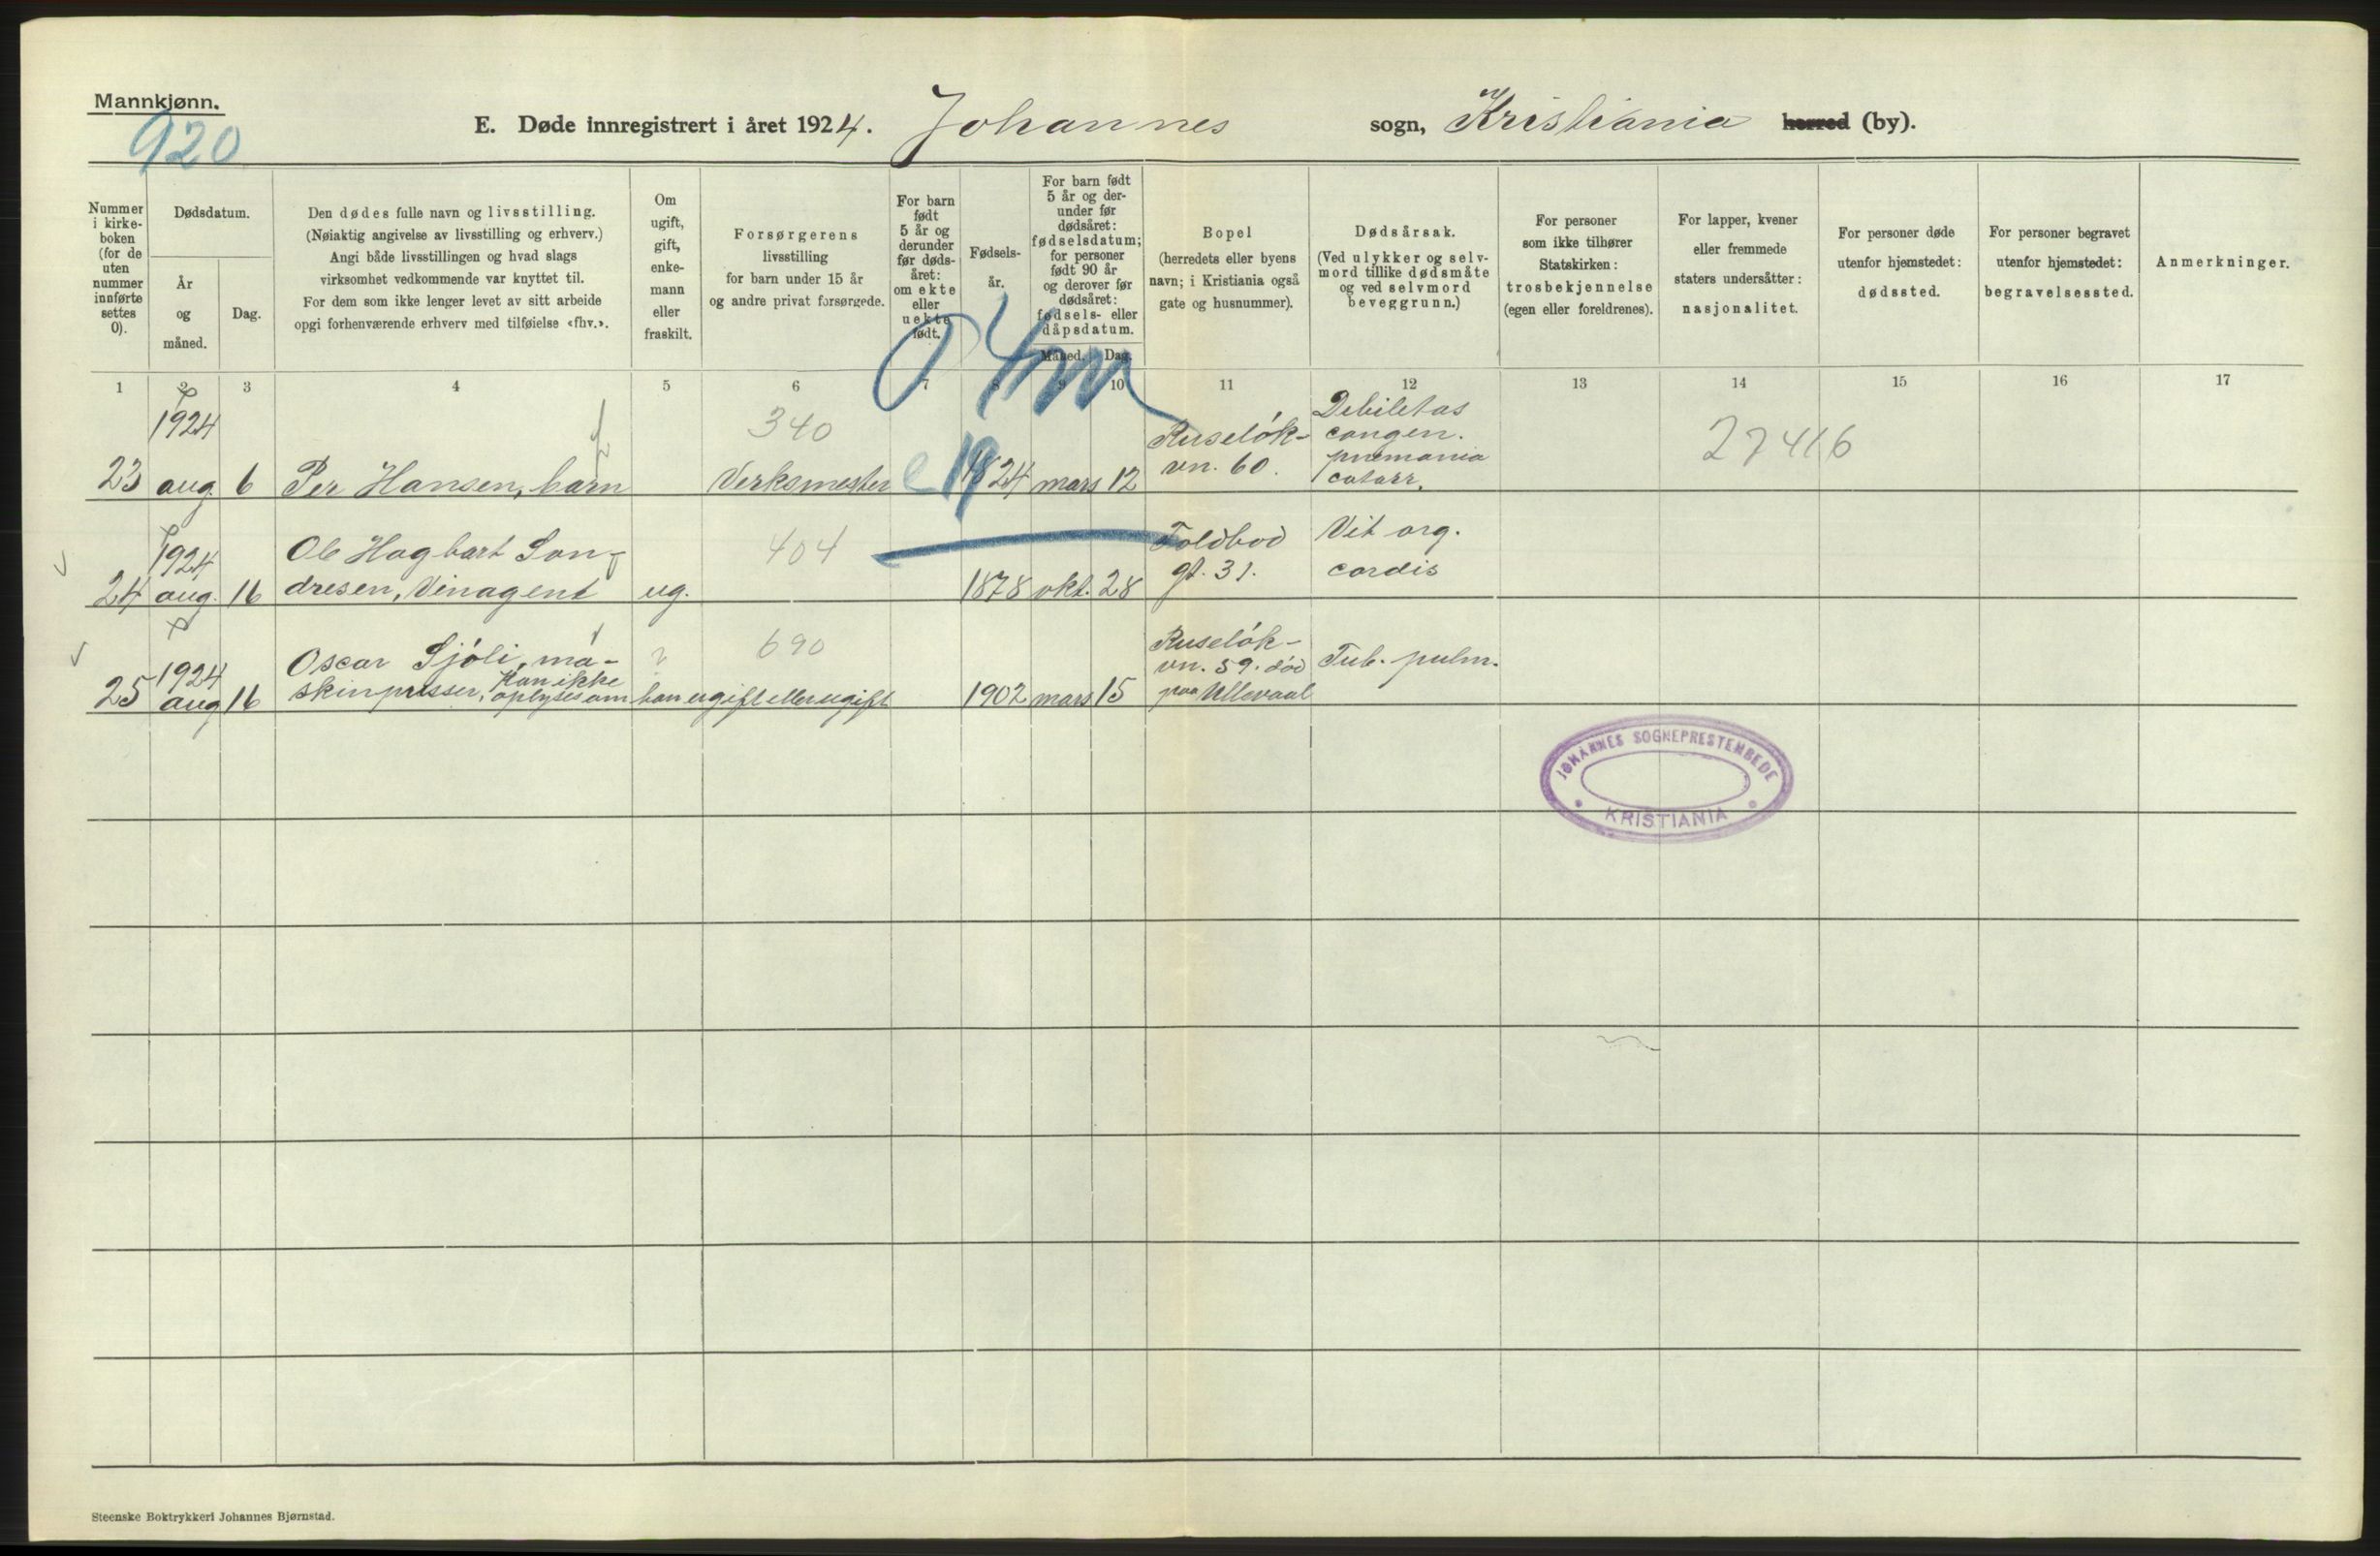 Mannkjønn.
920
E. Døde innregistrert i året 1924. Johannes sogn, Kristiania herred (by).
Nummer
i kirke-
boken
(for de
uten
nummer
innførte
settes
0).
Dødsdatum.
År
og
måned.
Dag.
Den dødes fulle navn og livsstilling.
(Nøiaktig angivelse av livsstilling og erhverv.)
Angi både livsstillingen og hvad slags
virksomhet vedkommende var knyttet til.
For dem som ikke lenger levet av sitt arbeide
opgi forhenværende erhverv med tilføielse «fhv.».
Om
ugift,
gift,
enke-
mann
eller
fraskilt.
Forsørgerens
livsstilling
for barn under 15 år
og andre privat forsørgede.
For barn
født
5 år og
derunder
før døds-
året:
om ekte
eller
uekte
født.
Fødsels-
år.
For barn født
5 år og der-
under før
dødsåret:
fødselsdatum;
for personer
født 90 år
og derover før
dødsåret:
fødsels- eller
dåpsdatum.
Måned. Dag.
Bopel
(herredets eller byens
navn; i Kristiania også
gate og husnummer).
Dødsårsak.
(Ved ulykker og selv-
mord tillike dødsmåte
og ved selvmord
beveggrunn.)
For personer
som ikke tilhører
Statskirken:
trosbekjennelse
(egen eller foreldrenes).
For lapper, kvener
eller fremmede
staters undersåtter:
nasjonalitet.
For personer døde
utenfor hjemstedet:
dødssted.
For personer begravet
utenfor hjemstedet:
begravelsessted.
Anmerkninger.
1 2 3 4 5 6 7 8 9 10 11 12 13 14 15 16 17
1924
23 aug 6 Per Hansen, barn
340
Verksmester
e 1924 mars 12
Ruseløk-
vn. 60.
Debiletas
congen.
pnemonia
catarr.
27416
1924
24 aug. 16
Ole Hagbart Son-
dresen, Vinagent
ug.
404
1878 okt. 28
Toldbod
gt. 31.
Vit org.
cordis
1924
25 aug 16
Oscar Sjøli, ma-
skinpusser. Kan ikke
oplyses om han er gift eller ugift
?
690
1902 mars 15
Ruseløk-
vn. 59. død
paa Ullevaal
Tub. pulm.
JOHANNES SOGNEPRESTEMBEDE
KRISTIANIA
Steenske Boktrykkeri Johannes Bjørnstad.